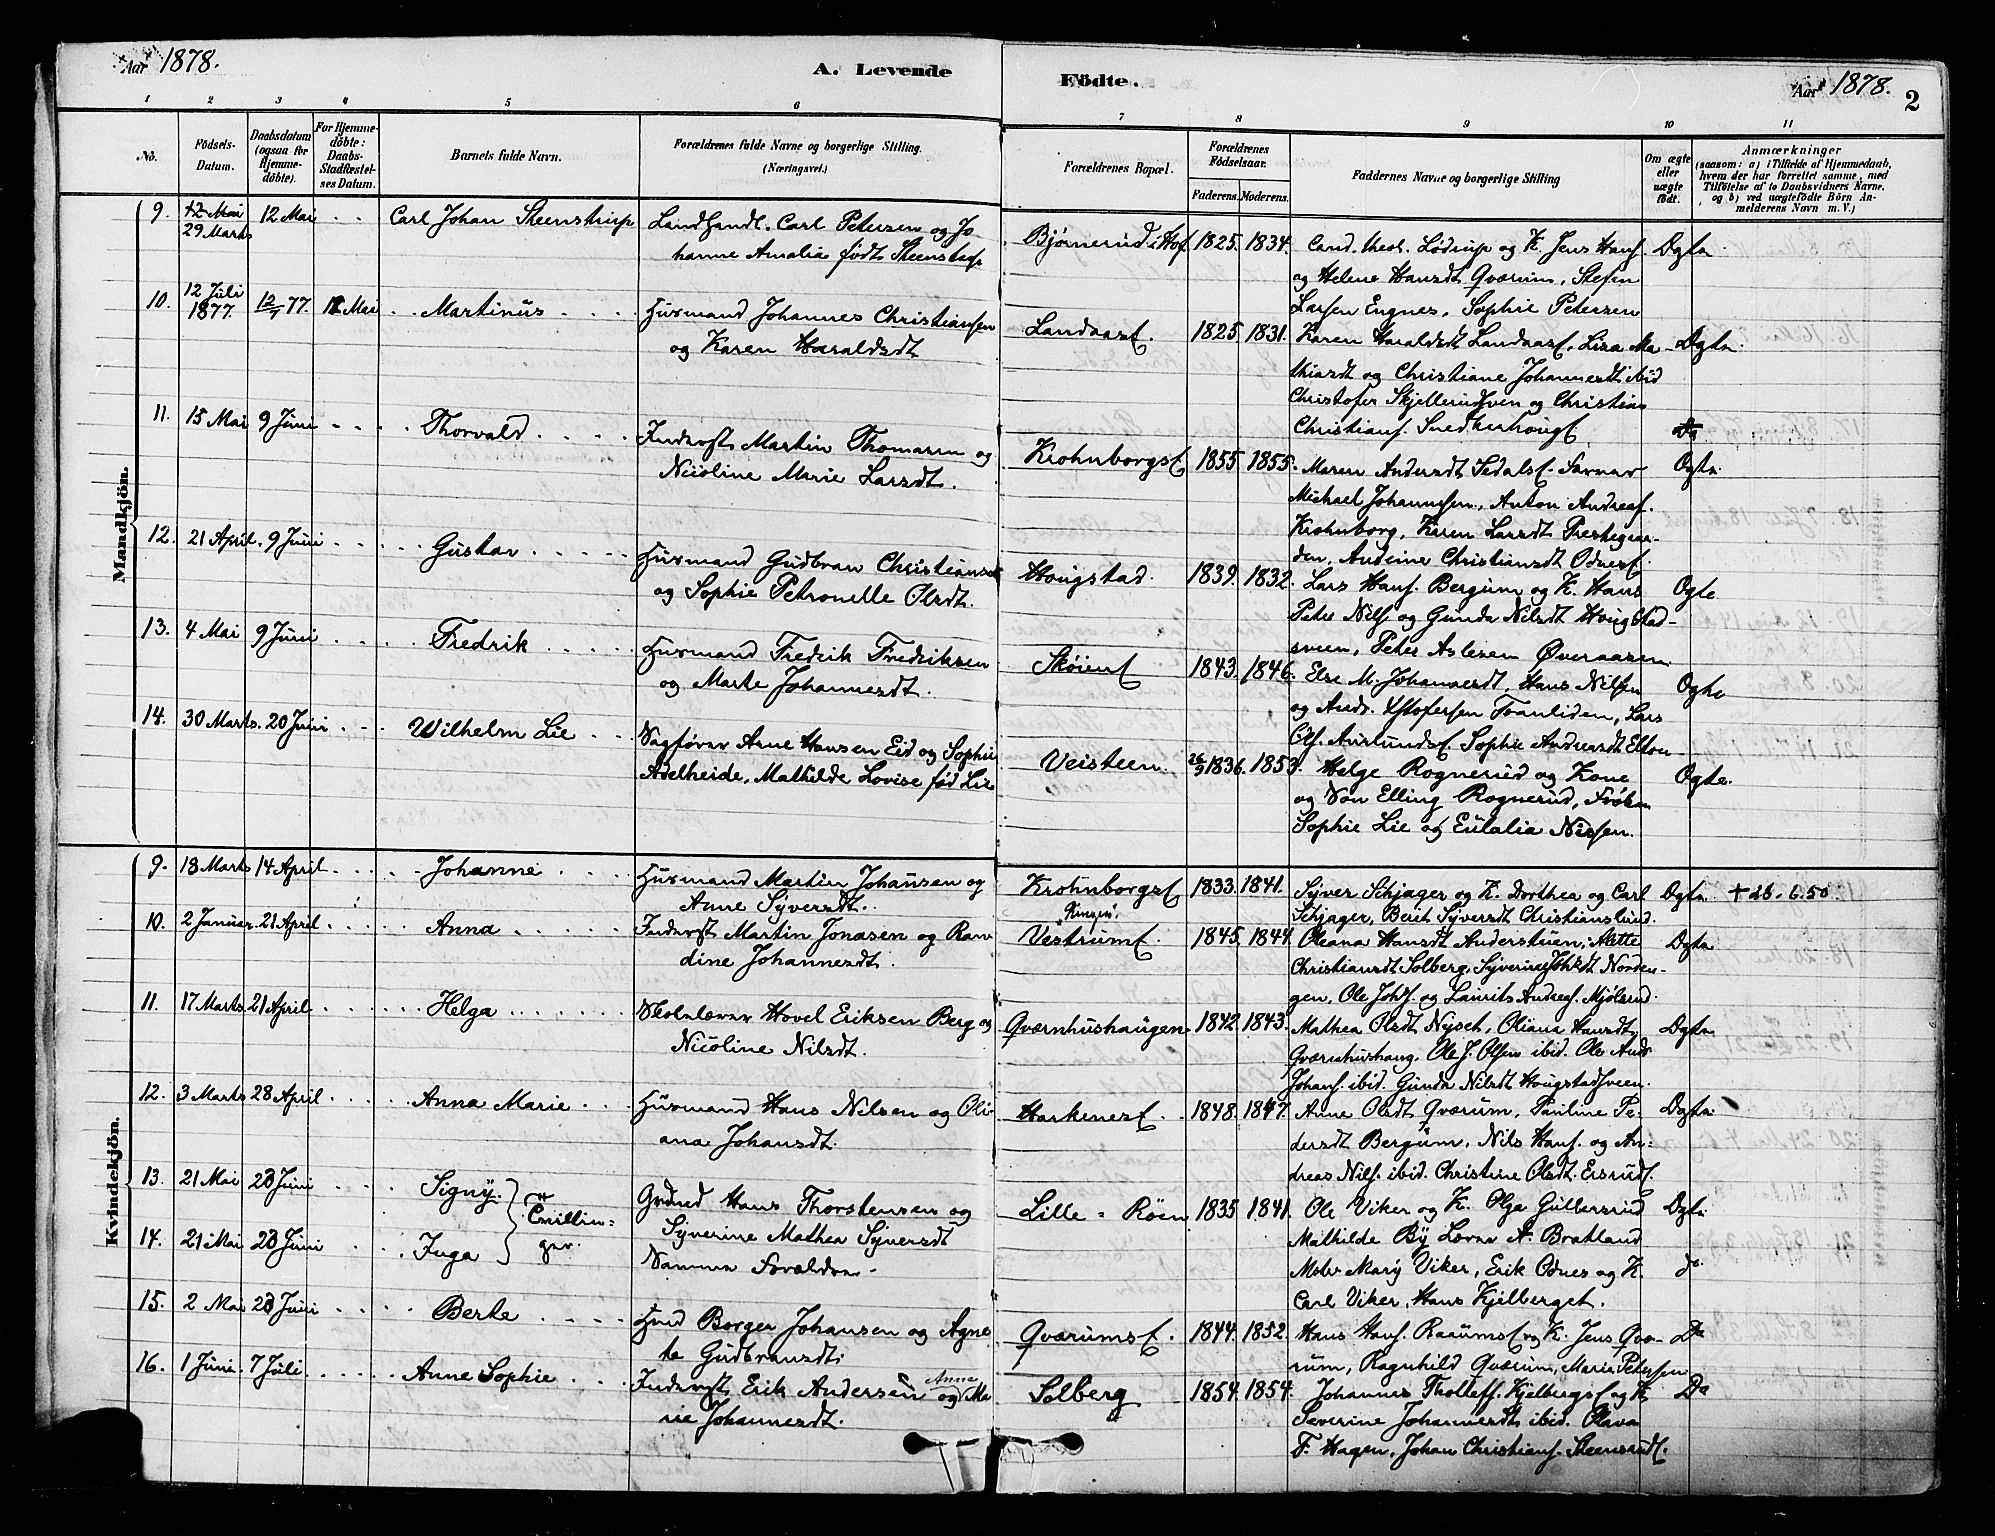 Aar 1878.
A. Levende
Födte.
Aar 1878.
2
1 2 3 4 5 6 7 8 9 10 11
No.
Födsels-Datum.
Daabsdatum (ogsaa for Hjemme-döbte).
For Hjemme-döbte: Daabs-Stadfæstel-ses Datum.
Barnets fulde Navn.
Forældrenes fulde Navne og borgerlige Stilling.
(Næringsvei.)
Forældrenes Bopæl.
Forældrenes Födselsaar.
Faderens. Moderens.
Faddernes Navne og borgerlige Stilling
Om ægte eller uægte födt.
Anmærkninger
(saasom: a) i Tilfælde af Hjemmedaab, hvem der har forrettet samme, med Tilföielse af to Daabsvidners Navne, og b) ved uægtefödte Börn An-melderens Navn m. V.)
Mandkjön.
9. 12 Mai 29 Marts 12 Mai Carl Johan Steenstrup
Landhandl. Carl Petersen og Jo
hanne Amalia født Steenstrup
Bjørnerud i Hof 1825. 1834.
Cand. theol. Lødrup og K. Jens Hans.
og Helene Hansdt Qværum, Stefen
Larsen Engnes, Sophie Petersen
10. 12 Juli 1877. 12/7 77. Mai Martinus
Husmand Johannes Christiansen
og Karen Haraldsdt
Landaase. 1825 1831.
Karen Haraldsdt Landaase, Lisa Ma-
thiasdt og Christiane Johannesdt ibid
Christofer Skjellerudsven og Christian
11. 15 Mai 9 Juni Thorvald
Inderst Martin Thomasen og
Nicoline Marie Larsdt.
Krohnborgse 1855 1855.
Maren Andersdt
Michael Johannsen, Anton Andreas.
Krohnborg, Karen Larsdt Prestegaar-
den, Andrine Christiansdt
12. 21 April. 9 Juni Gustav
Husmand Gudbran Christiansen
og Sophie Petronelle Olsdt.
Hougstad. 1839. 1832.
Lars Hans. Bergum og K. Hans
Peter Nils og Gunda Nilsdt Hougstad-
sveen, Peter Aslesen Øveraasen
Ægte
13. 4 Mai 9 Juni Fredrik
Husmand Fredrik Fredriksen
og Marte Johannesdt.
Skøiene 1843. 1846.
Else M. Johannesdt, Hans Nilsen
og Andr. Tranliden, Lars
Ols. Sophie Andreasdt
14. 30 Marts. 20 Juni Wilhelm Lie
Sagfører Arne Hansen Eid og Sophie
Adelheide, Mathilde Lovise fød Lie
Veisteen. 26/9 1836. 1853.
Helge Rognerud og Kone
og Søn Elling Rognerud, Frøken
Sophie Lie og Eulalia Nissen.
Ægte.
Kvindekjön.
9. 18 Marts 14 April Johanne
Husmand Martin Johansen og
Anne Syversdt.
Krohnborgse 1833. 1841.
Syver Schjager og K. Dorthea og Carl
Schjager, Berit Syversdt Christianslund.
† 26.6.50
10. 2 Januar. 21 April Anna
Inderst Martin Jonasen og Ran
dine Johannesdt.
Vestrume. 1845. 1844.
Oleana Hansdt Anderstuen, Alette
Christiansdt Solberg, Syverine Johsdt Norden-
gen, Ole Johs. og Laurits Andreas. Mjølsrud.
11. 17 Marts. 21 April Helga
Skolelærer Hovel Eriksen Berg og
Nicoline Nilsdt.
Qværnhushaugen 1842. 1843.
Mathea Olsdt Nyset, Oliana Hansdt
Qværnhushaug, Ole J. Olsen ibid. Ole Andr
Johans. ibid. Gunda Nilsdt Hougstadsveen.
12. 3 Marts 28 April Anna Marie
Husmand Hans Nilsen og Oli
ana Johansdt.
Harkenese. 1848. 1847.
Anne Olsdt Qværum, Pauline Pe-
dersdt Bergum, Nils Hans. og An-
dreas Nils. ibid. Christine Olsdt
13. 21 Mai 23 Juni Signy. Tvillin=
ger.
Grdmd Hans Thorstensen og
Syverine Mathea Syversdt
Lille = Røen 1835 1841.
Ole Viker og K. Olga Gullerud
Mathilde By Lærer A. Bratland
14. 21 Mai 23 Juni Inga
Samme Forældre
Mary Viker, Erik Odnes og K.
Carl Viker, Hans Kjelberget.
do
15. 2 Mai 23 Juni Berte
Hmd Borger Johansen og Agne
te Gudbransdt.
Qværumse. 1844. 1852.
Hans Hans. og K. Jens Qvæ-
rum, Ragnhild Qværum, Marie Petersen
Do
16. 1 Juni. 7 Juli. Anne Sophie
Inderst Erik Andersen og Anne Ma
rie Johannesdt.
Solberg 1854. 1854.
Johannes og K.
Severine Johannesdt ibid. Olava
T. Hagen, Johan Christians. Steensrude.
Do